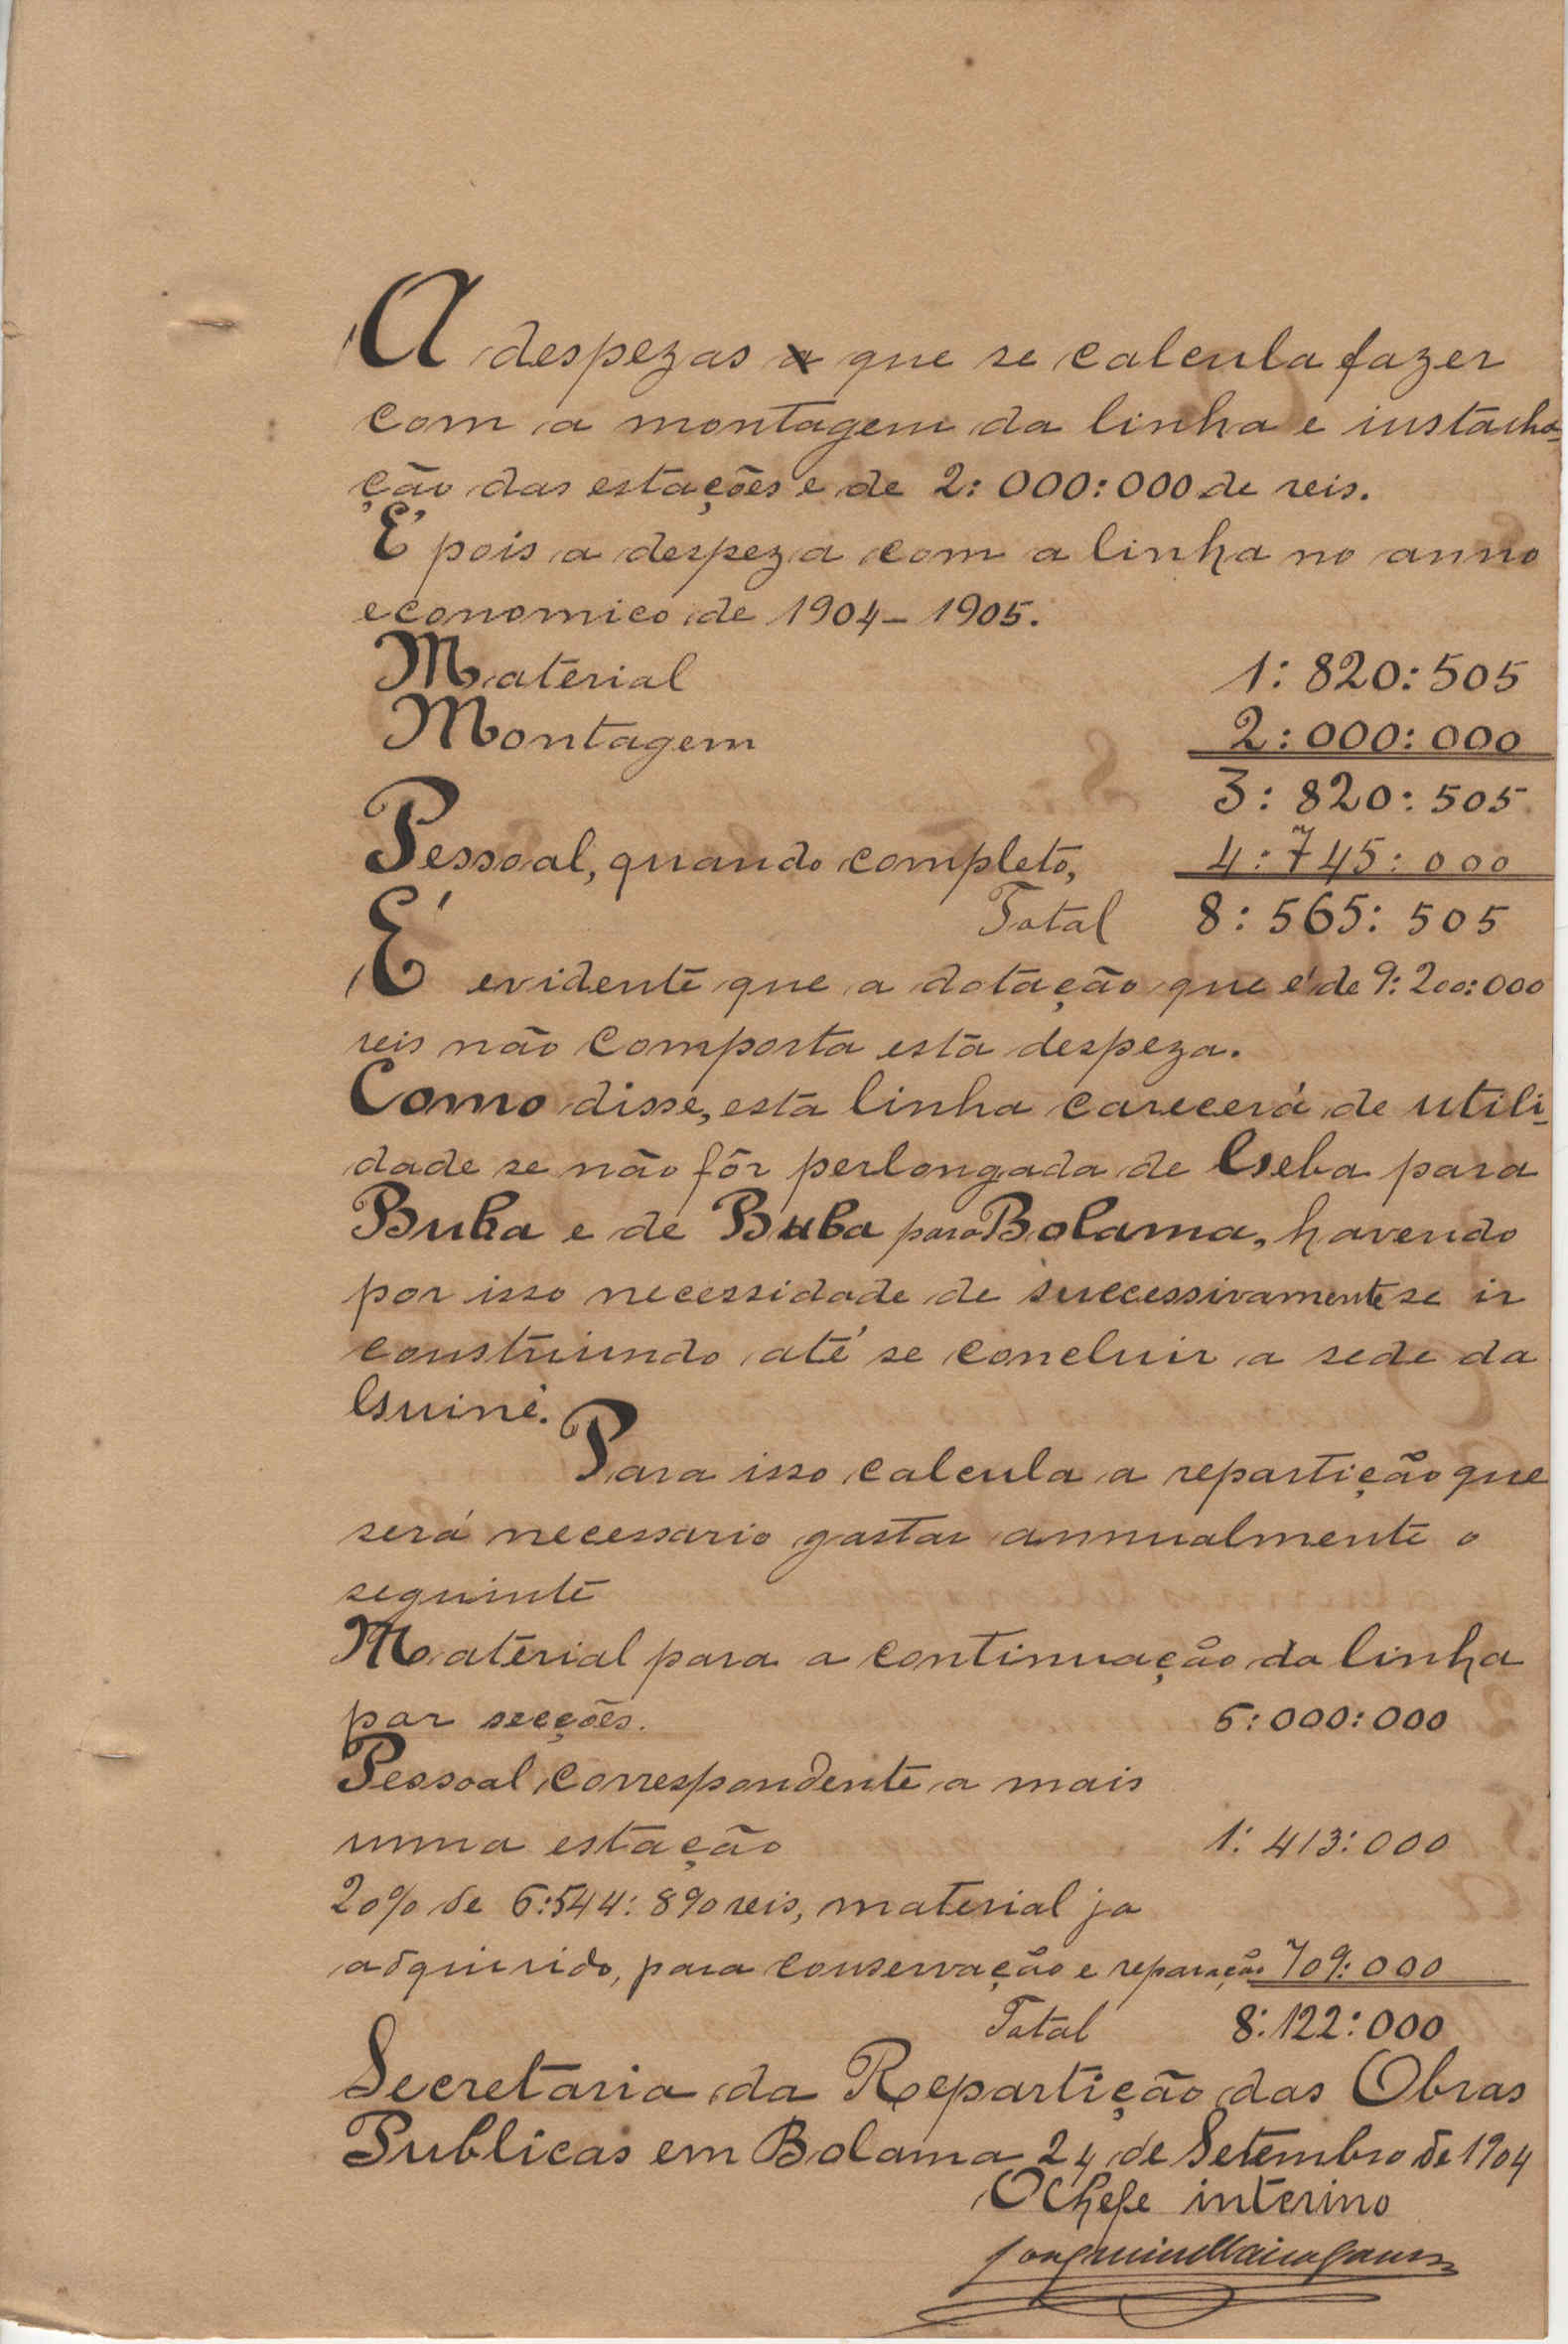 A despezas a que se calcula fazer
com a montagem da linha e instacha-
ção das estações e de 2:000:000 de reis.
É pois a despeza com a linha no anno
economico de 1904-1905.
Material 1:820:505
Montagem 2:000:000
3:820:505
Pessoal, quando completo, 4:745:000
Total 8:565:505
É evidente que a dotação que é de 9:200:000
reis não comporta esta despeza.
Como disse, esta linha carecerá de utili-
dade se não fôr perlongada de Geba para
Buba e de Buba para Bolama, havendo
por isso necessidade de successivamente se ir
construindo até se concluir a sede da
Guiné.
Para isso calcula a repartição que
será necessario gastar annualmente o
seguinte
Material para a continuação da linha
por secções. 6:000:000
Pessoal correspondente a mais
uma estação 1:413:000
20% de 6:544:890 reis, material ja
adquirido, para conservação e reparação 709:000
Total 8:122:000
Secretaria da Repartição das Obras
Publicas em Bolama 24 de Setembro de 1904
O Chefe interino